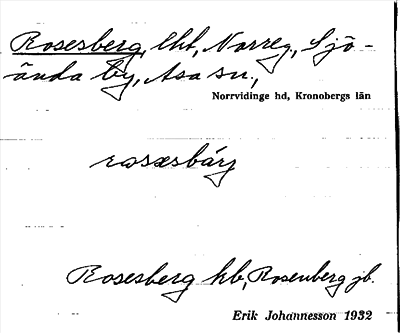 Rosesberg, lht, Norreg, Sjö-
ända by, Asa sn.,
Norrvidinge hd, Kronobergs län
rosæsbárj
Rosesberg kb, Rosenberg jb.
Erik Johannesson 1932